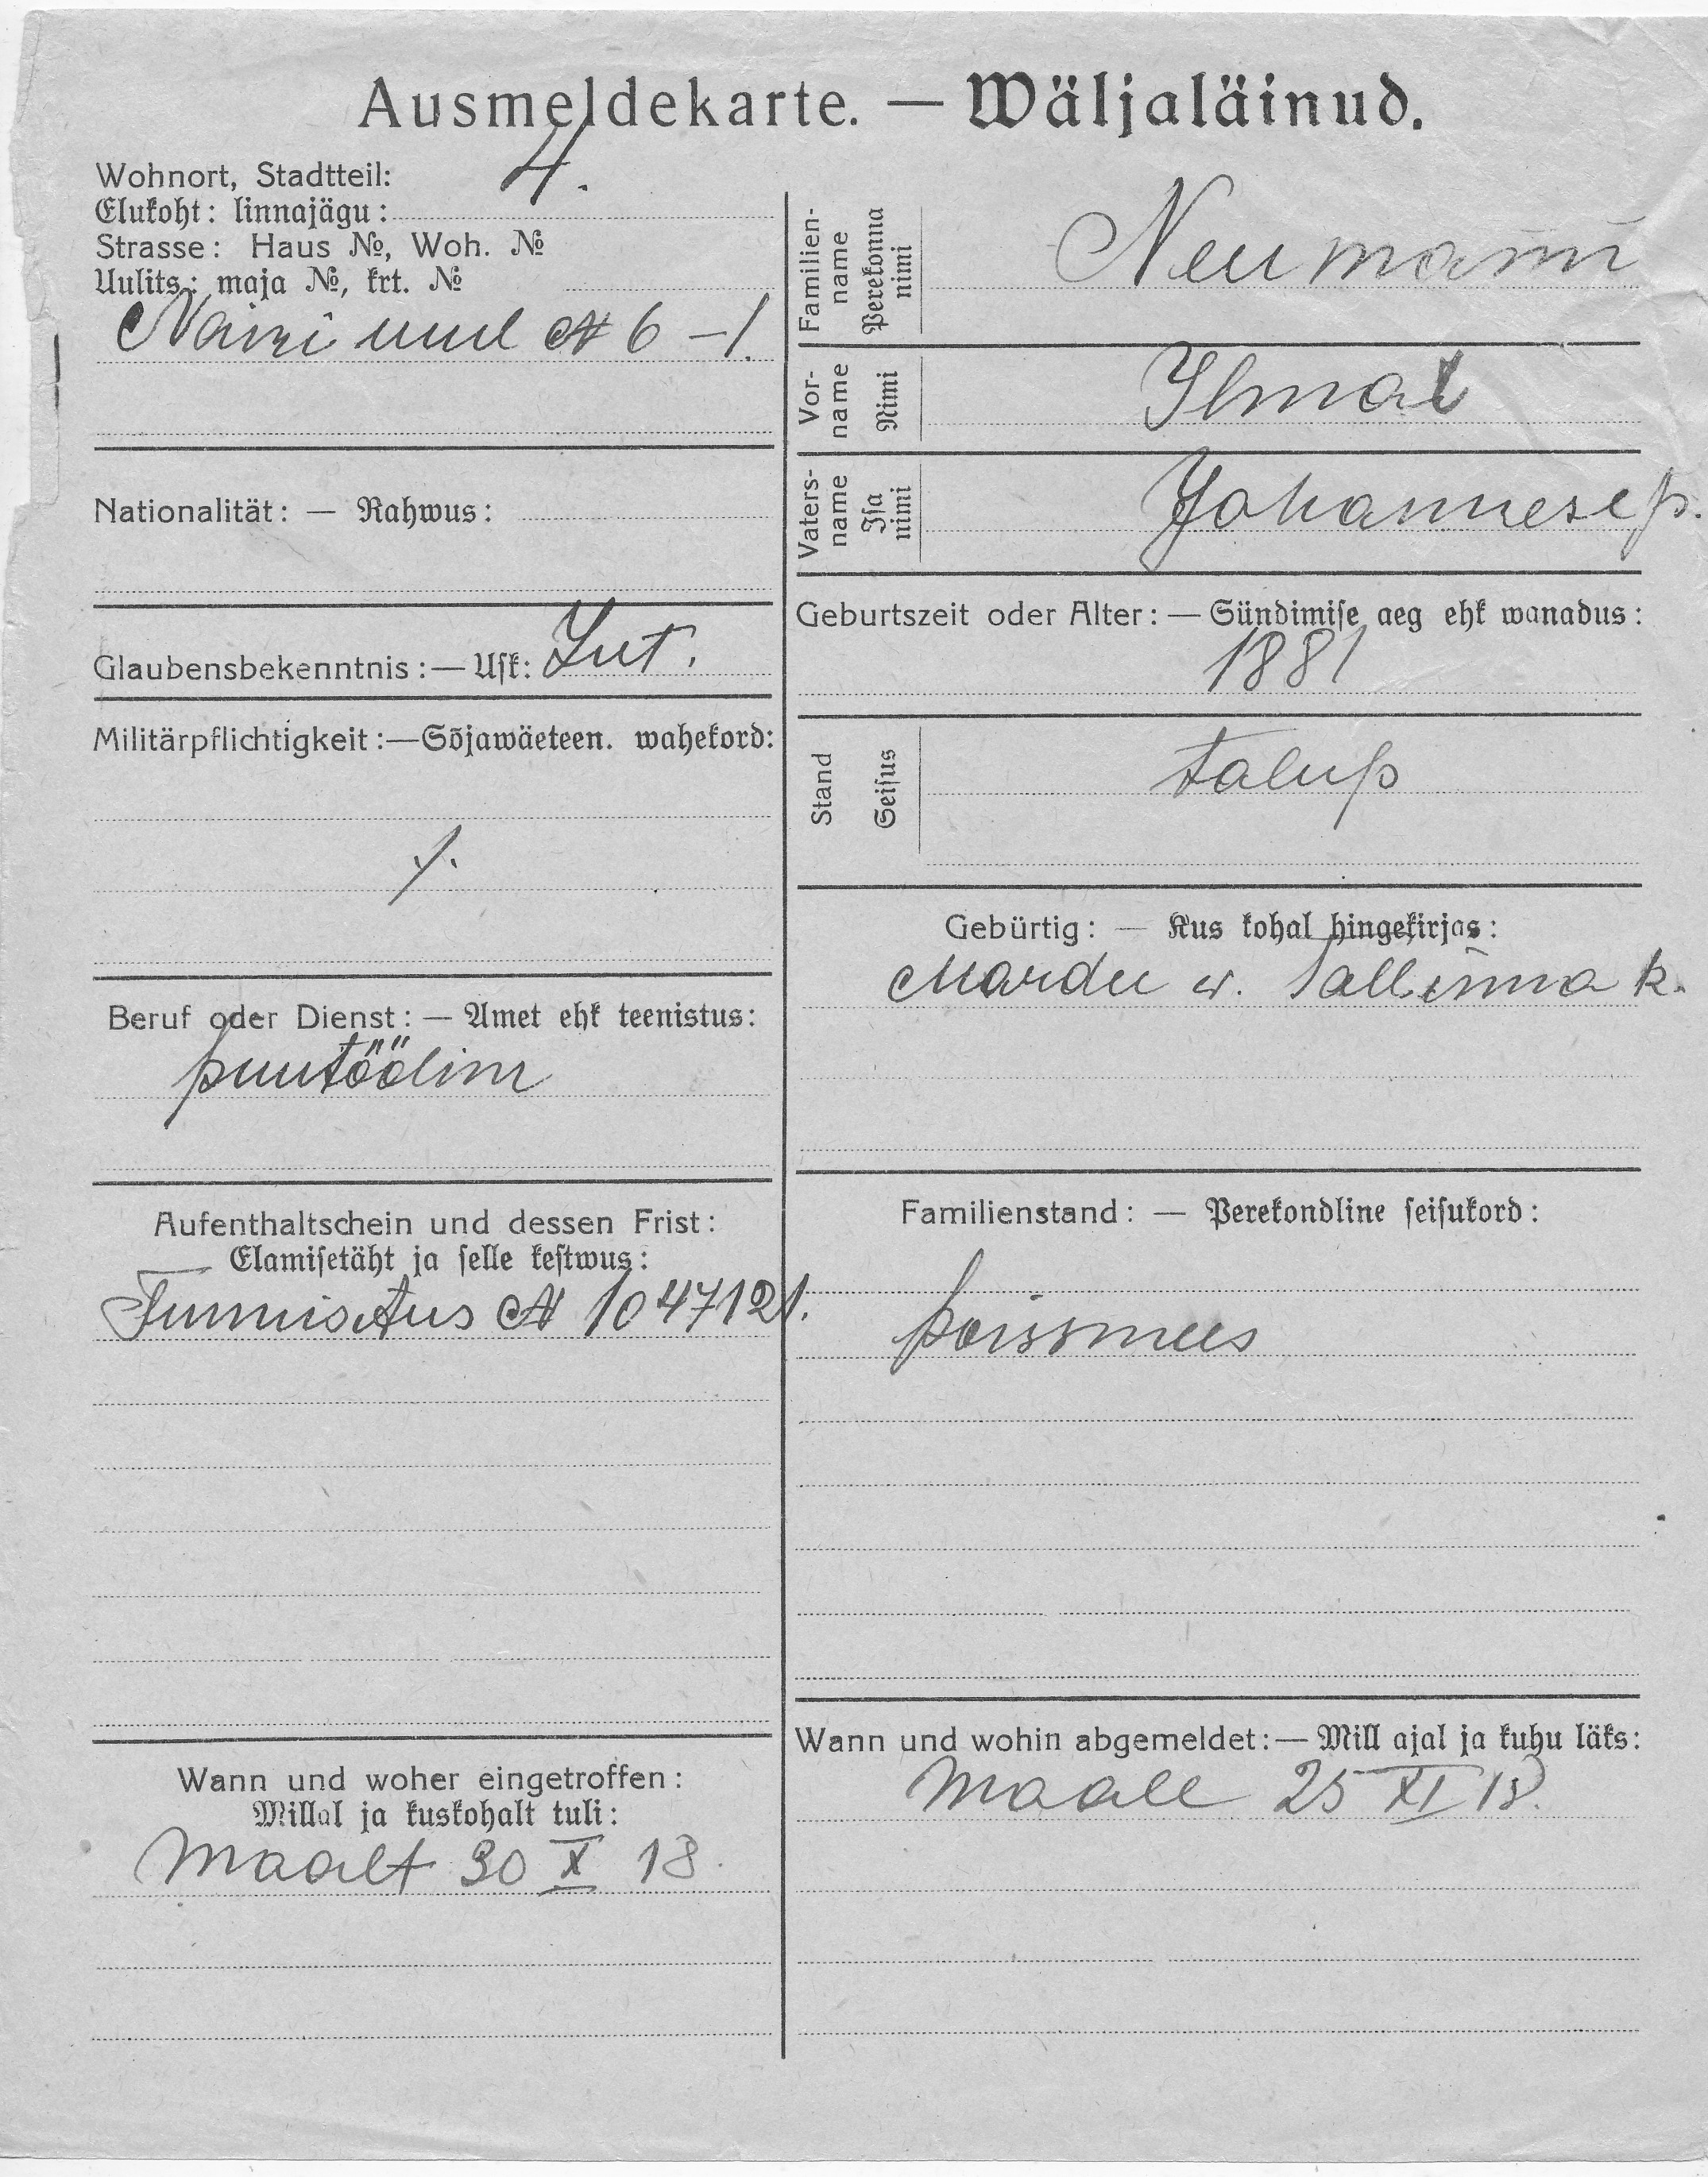 Ausmeldekarte. — Wäljaläinud.
Wohnort, Stadtteil: 4.
Elukoht: linnajägu:
Strasse: Haus №, Woh. №
Uulits: maja №, krt. №
№ 6 – 1.
Nationalität: — Rahwus:
Glaubensbekenntnis: — Usk: Lut.
Militärpflichtigkeit: — Sõjawäeteen. wahekord:
Beruf oder Dienst: — Amet ehk teenistus:
puutöölinr
Aufenthaltschein und dessen Frist:
Elamisetäht ja selle kestwus:
Tunnistus № 1047121.
Wann und woher eingetroffen:
Millal ja kuskohalt tuli:
Maalt 30 X 18.
Familien-
name
Perekonna
nimi
Neumann
Vor-
name
Nimi
Ilmar
Vaters-
name
Isa
nimi
Johannese p.
Geburtszeit oder Alter: — Sündimise aeg ehk wanadus:
1881
Stand
Seisus
talup
Gebürtig: — Kus kohal hingekirjas:
Mardu w. Tallinna k.
Familienstand: — Perekondline seisukord:
poissmees
Wann und wohin abgemeldet: — Mill ajal ja kuhu läks:
Maale 25 XI 18.